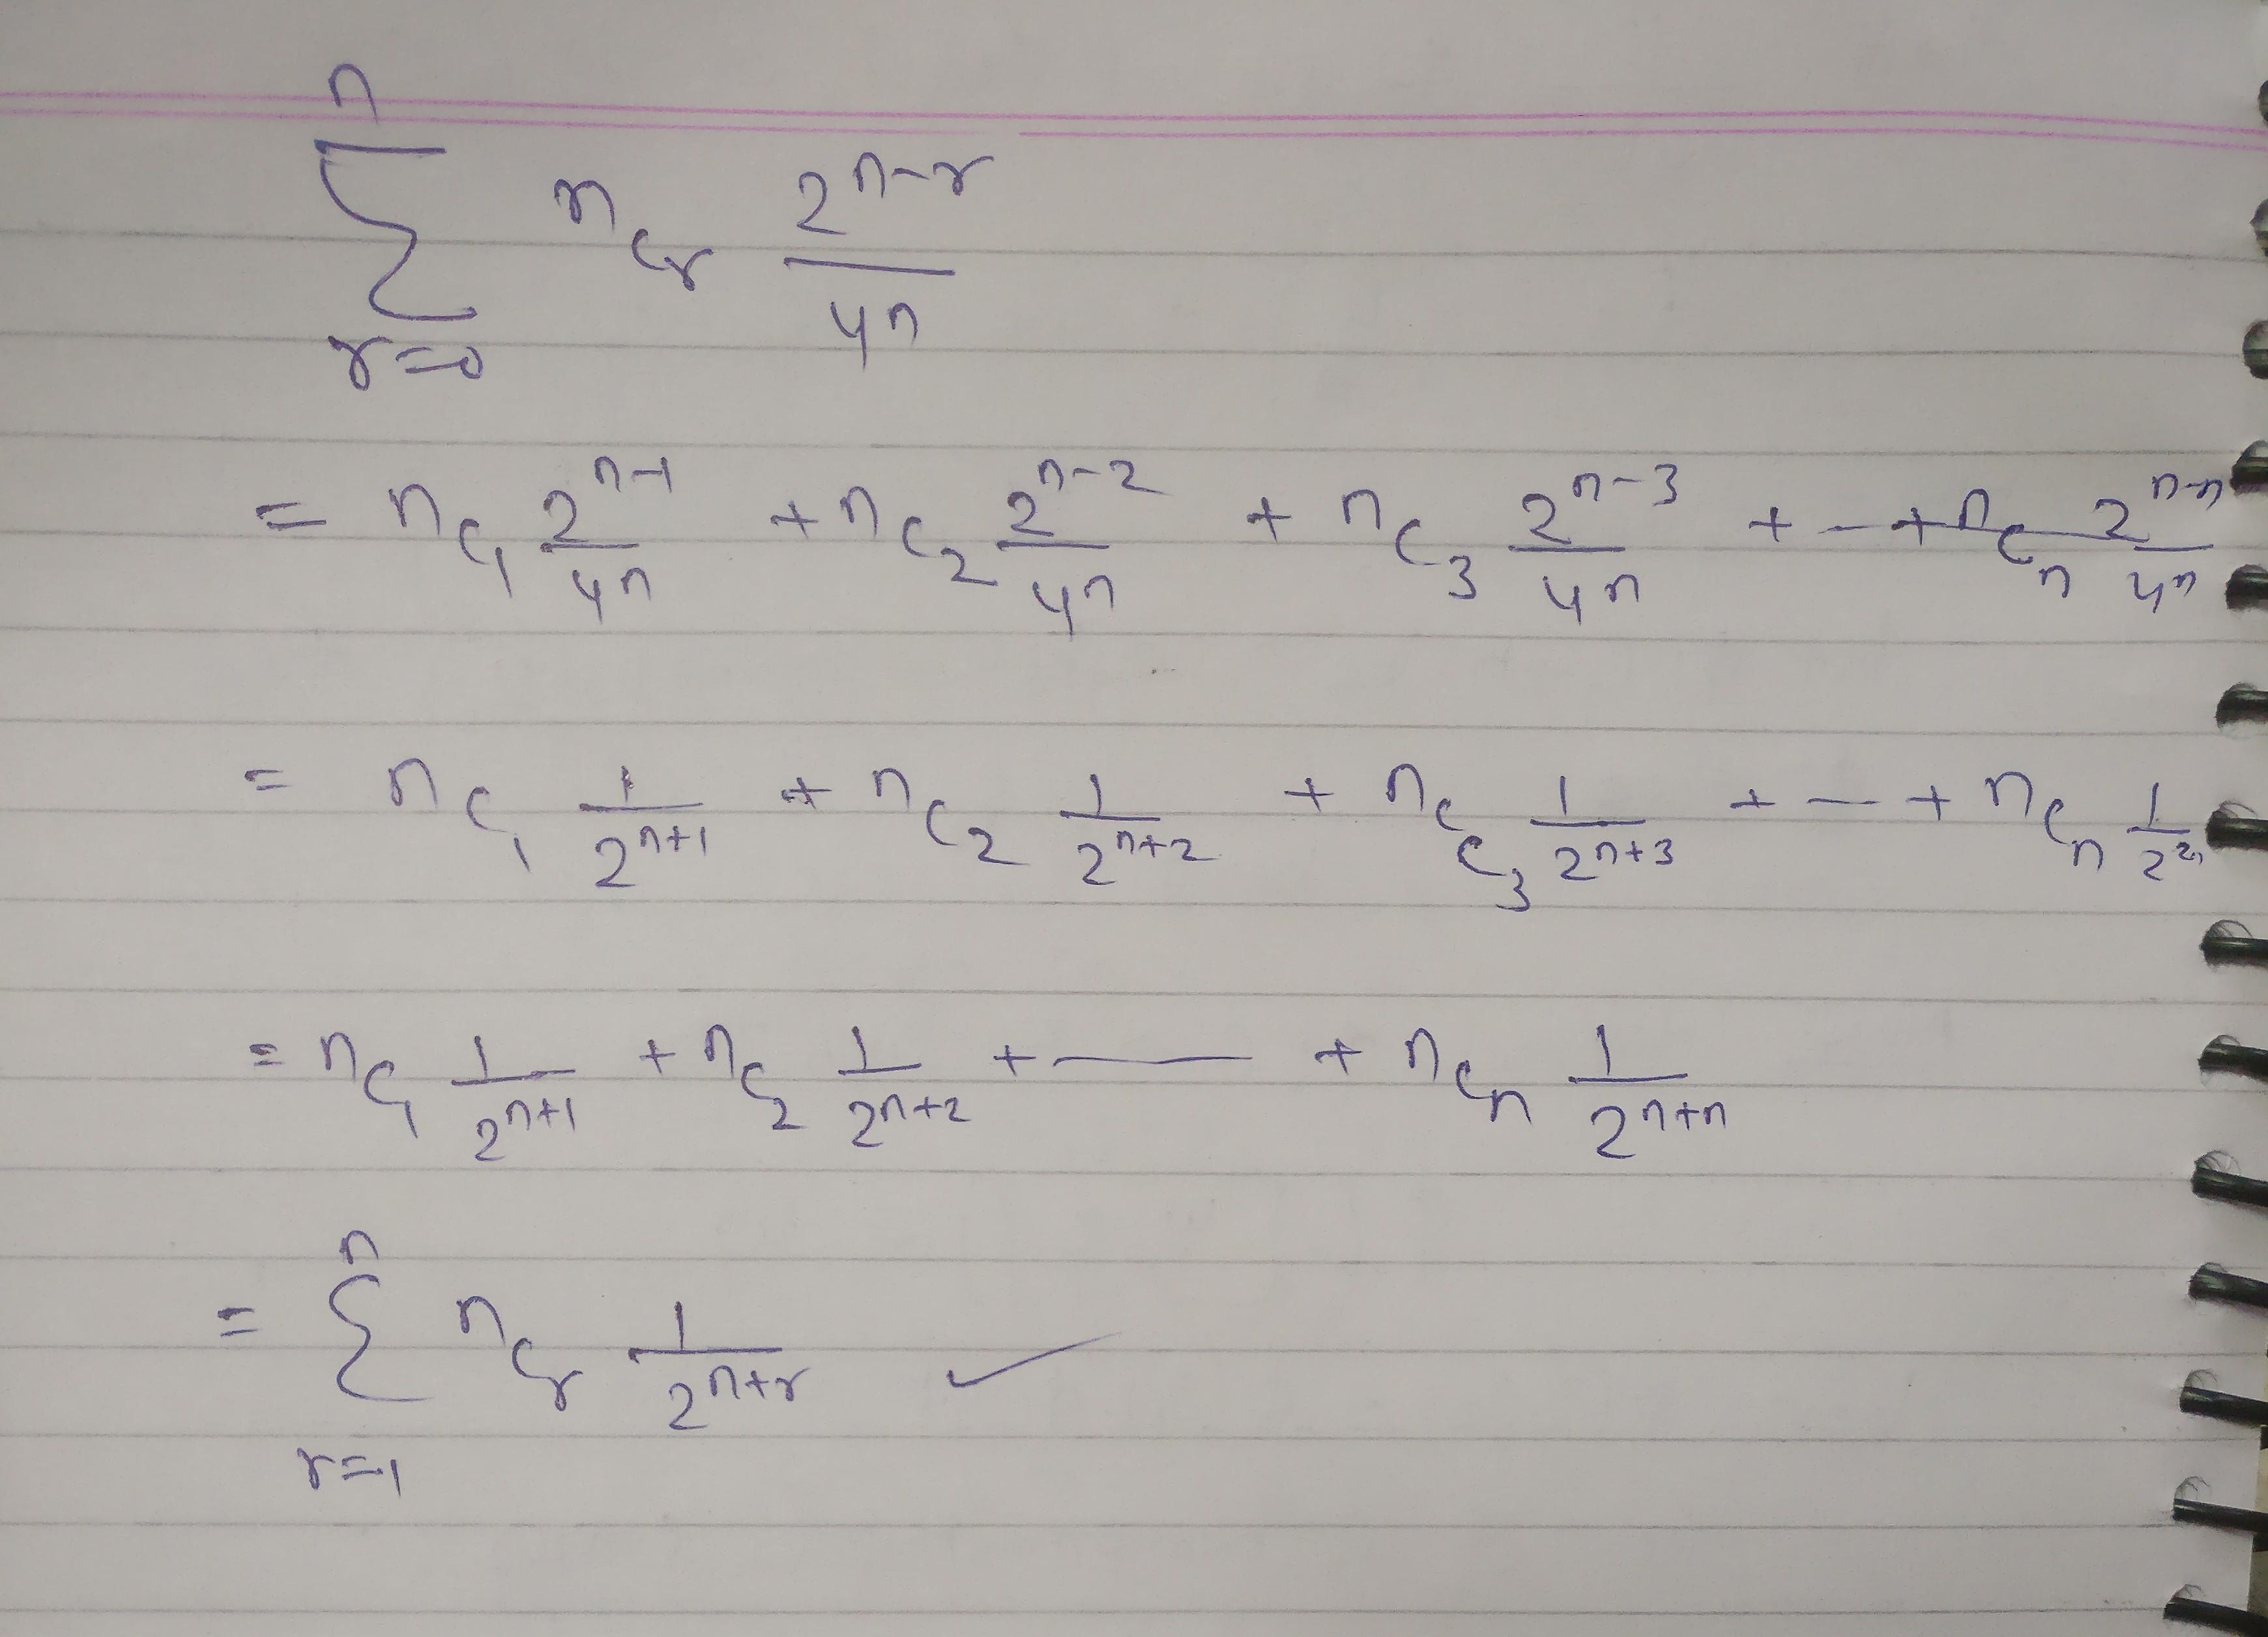 \sum_{r=0}^{n} {}^{n}C_{r} \frac{2^{n-r}}{4^{n}}
= {}^{n}C_{1} \frac{2^{n-1}}{4^{n}} + {}^{n}C_{2} \frac{2^{n-2}}{4^{n}} + {}^{n}C_{3} \frac{2^{n-3}}{4^{n}} + - + {}^{n}C_{n} \frac{2^{n-n}}{4^{n}}
= {}^{n}C_{1} \frac{1}{2^{n+1}} + {}^{n}C_{2} \frac{1}{2^{n+2}} + {}^{n}C_{C_{3}} \frac{1}{2^{n+3}} + — + {}^{n}C_{n} \frac{1}{2^{2n}}
= {}^{n}C_{1} \frac{1}{2^{n+1}} + {}^{n}C_{2} \frac{1}{2^{n+2}} + —— + {}^{n}C_{n} \frac{1}{2^{n+n}}
= \sum_{r=1}^{n} {}^{n}C_{r} \frac{1}{2^{n+r}} ✓